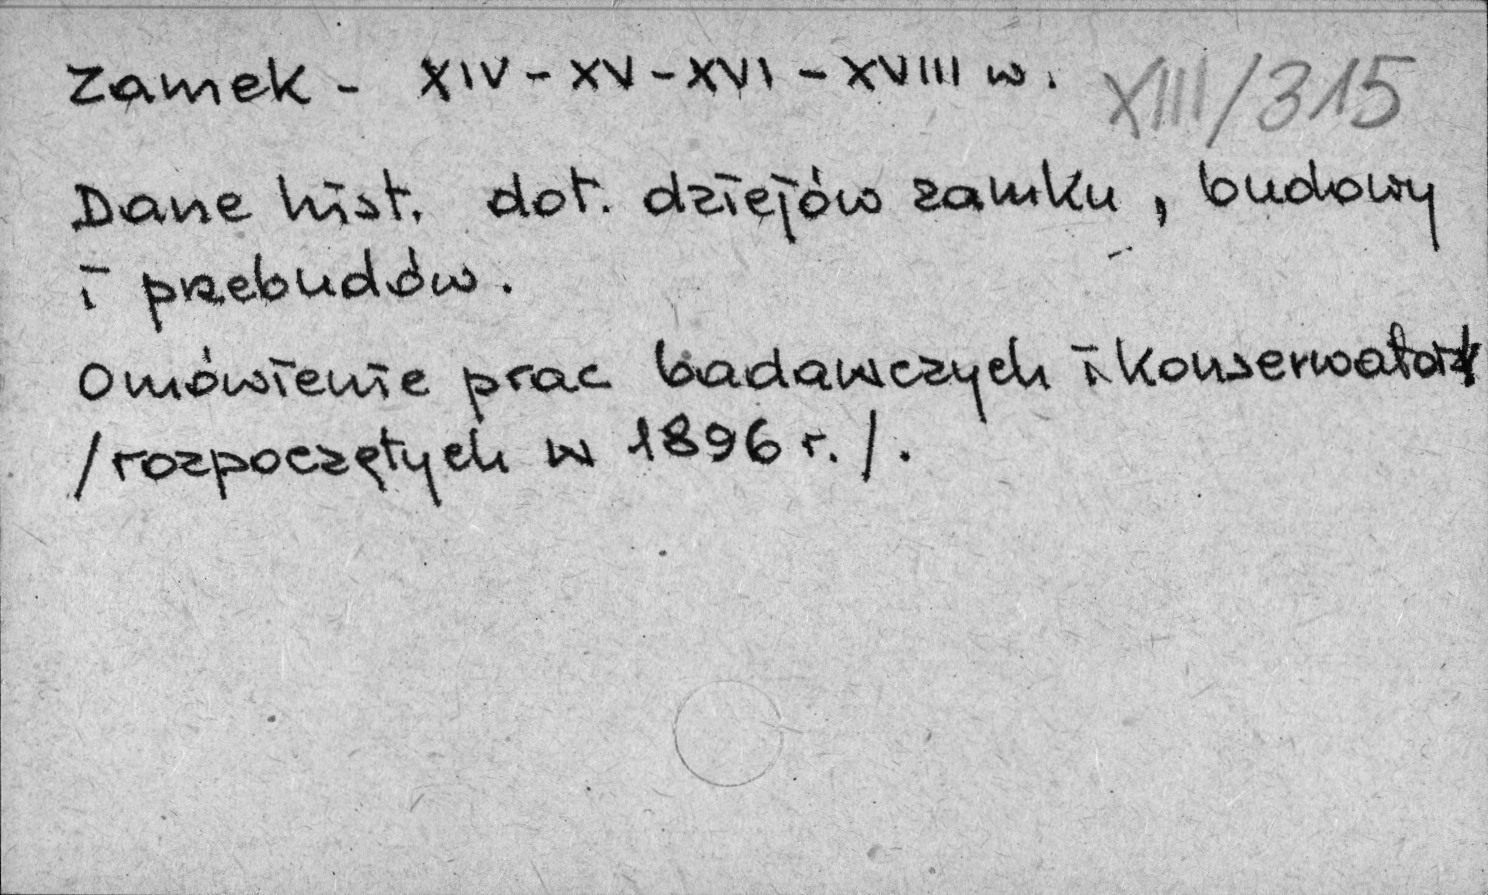 Zamek - XIV - XV - XVI - XVIII w. XIII/315
Dane hist. dot. dziejów zamku, budowy
i przebudów.
Omówienie prac badawczych i konserwator
/rozpoczętych w 1896 r./.